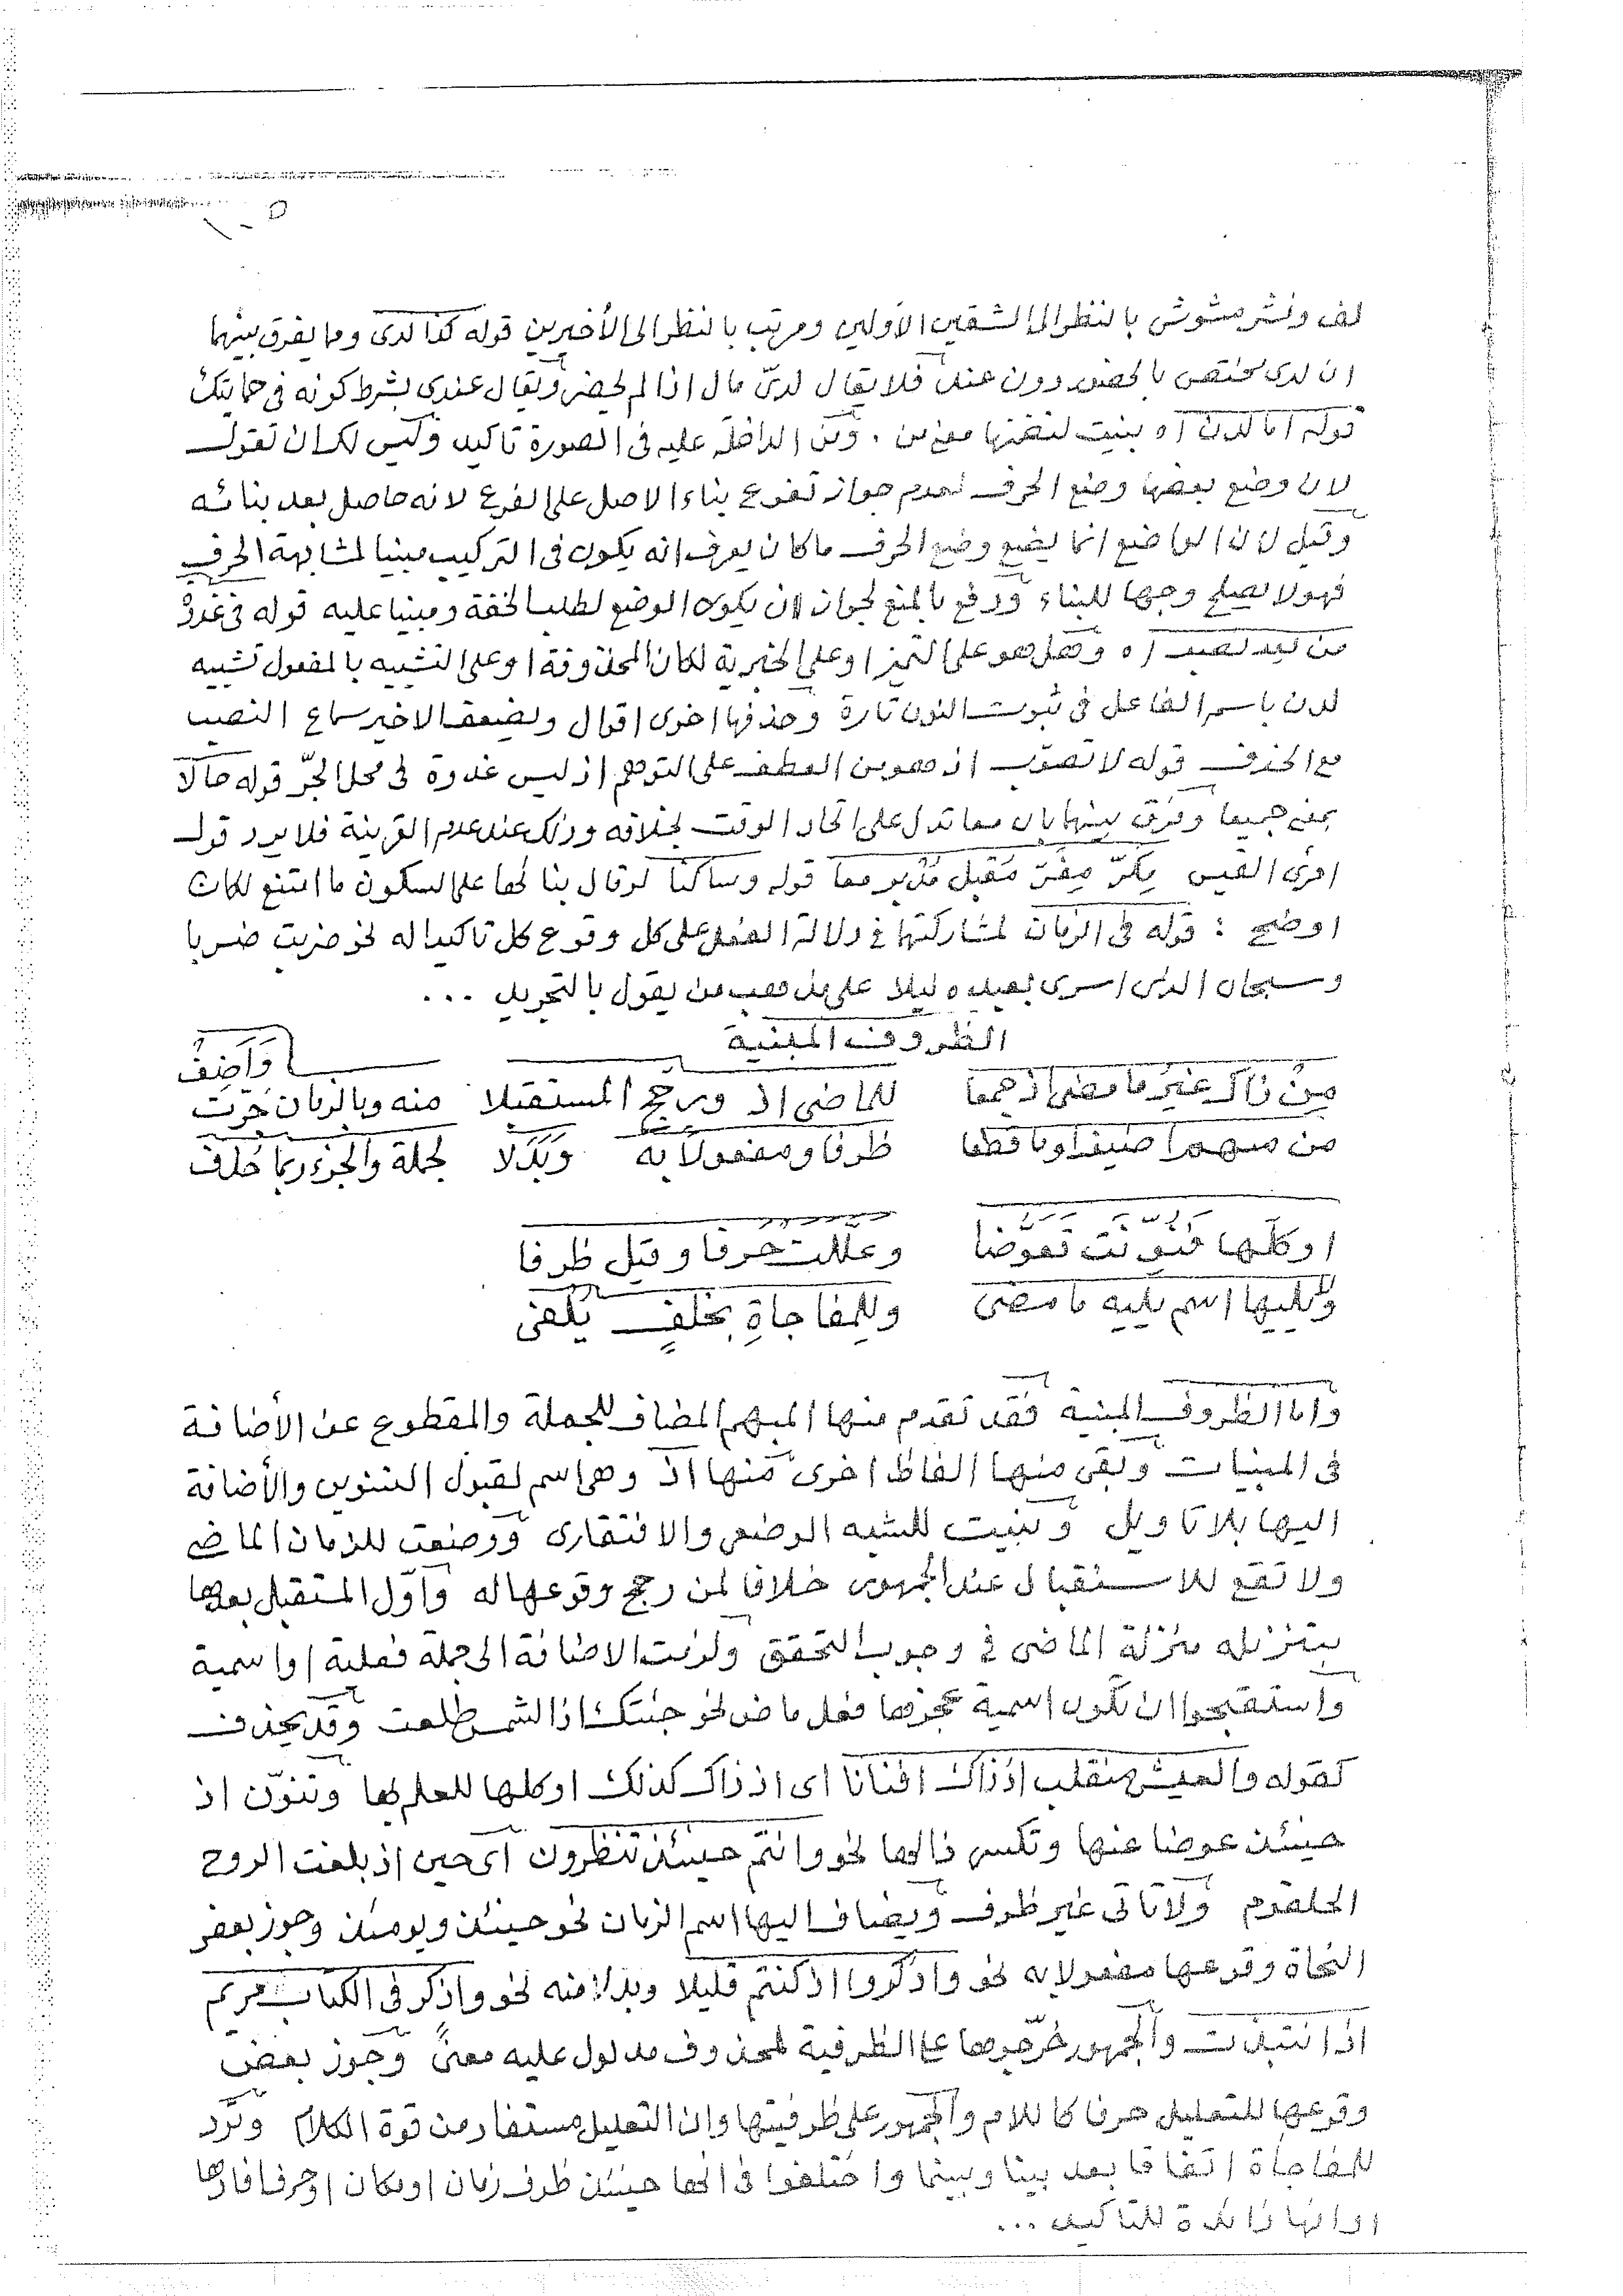 لف ونشر مشوش بالنظر الى الشقين الاولين ومرتب بالنظر الى الأخيرين قوله كذا لدى ومما يفرق بينهما
ان لدى مختص بالحضور دون عند فلا يقال لدىّ مال اذا لم يحضر ويقال عندى بشرط كونه فى حمايتك
قوله اما لدن اه بنيت لتضمنها معنى من . ومن الداخلة عليه فى الصورة تاكيد وليس لك ان تقول
لان وضع بعضها وضع الحرف لعدم جواز تفريع بناء الاصل على الفرع لانه حاصل بعد بنائه
وقيل لان الواضع انما يضع وضع الحرف ما كان يعرف انه يكون فى التركيب مبنيا لمشابهة الحرف
فهو لا يصلح وجها للبناء ودفع بالمنع لجواز ان يكون الوضع لطلب الخفة ومبنيا عليه قوله فى غدوة
من ليد نصب اه وهل هو على التميز او على الخبرية لكان المحذوفة او على التشبيه بالمفعول تشبيه
لدن باسم الفاعل فى ثبوت النون تارة وحذفها اخرى اقوال ويضعف الاخير سماع النصب
مع الحذف قوله لا تصوّب اذ هو من العطف على التوهم اذ ليس غدوة فى محل الجرّ قوله حالا
بمعنى جميعا وفرق بينهما بان معا تدل على اتحاد الوقت بخلافه وذلك عند عدم القرينة فلا يرد قول
امرئ القيس مِكَرّ مِفَرّ مُقبل مُدبر معا قوله وساكنا لو قال بنائها على السكون ما امتنع لكان
اوضح : قوله فى الزمان لمشاركتها فى دلالة الفعل على كل وقوع كل تاكيدا له نحو ضربت ضربا
وسبحان الذى اسرى بعبده ليلا على مذهب من يقول بالتجريد ...
الظروف المبنية
وَاَضِفْ
مِن ذاك غير ما مضى اذ جمعا للماضى اذ ورجح المستقبلا منه وبالزمان خرّت
من مبهم اضيف او ما قطعا ظرفا ومفعولا به وبَدَلا لجملة والجزء ربما حُذف
او كلّها فنوّنَت تعوّضا وعللت حرفا وقيل ظرفا
ويليها اسم يليه ما مضى وللمفاجاةِ بخلفٍ يُلفى
واما الظروف المبنية فقد تقدم منها المبهم المضاف للجملة والمقطوع عن الأضافة
فى المبنيات وبقى منها الفاظ اخرى منها اذ وهى اسم لقبول التنوين والأضافة
اليها بلا تاويل وبنيت للشبه الوضعى والافتقارى ووضعت للزمان الماضى
ولا تقع للاستقبال عند الجمهور خلافا لمن رجح وقوعها له واوّل المستقبل بعدها
بتنزيله منزلة الماضى فى وجوب التحقق ولزمت الاضافة الى جملة فعلية او اسمية
واستقبحوا ان تكون اسمية عجزها فعل ماض نحو جئتك اذ الشمس طلعت وقد يحذف
كقوله والعيش منقلب اذ ذاك افنانا اى اذ ذاك كذلك او كلها للعلم بها وتنوّن اذ
حينئذ عوضا عنها وتكسر ذالها نحو وانتم حينئذ تنظرون اى حين اذ بلغت الروح
الحلقوم ولا تاتى غير ظرف ويضاف اليها اسم الزمان نحو حينئذ ويومئذ وجوز بعض
النحاة وقوعها مفعولا به نحو واذكروا اذ كنتم قليلا وبدلا منه نحو واذكر فى الكتاب مريم
اذ انتبذت والجمهور خرّجوها على الظرفية لمحذوف مدلول عليه معنىً وجوز بعض
وقوعها للتعليل حرفا كاللام والجمهور على ظرفيتها وان التعليل مستفاد من قوة الكلام وترد
للمفاجأة اتفاقا بعد بينا وبينما واختلفوا فى انها حينئذ ظرف زمان او مكان او حرف افادها
او انها زائدة للتاكيد ...